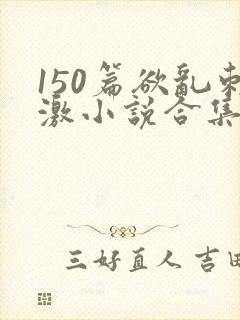 150篇欲乱刺
激小说合集
三好直人 吉田